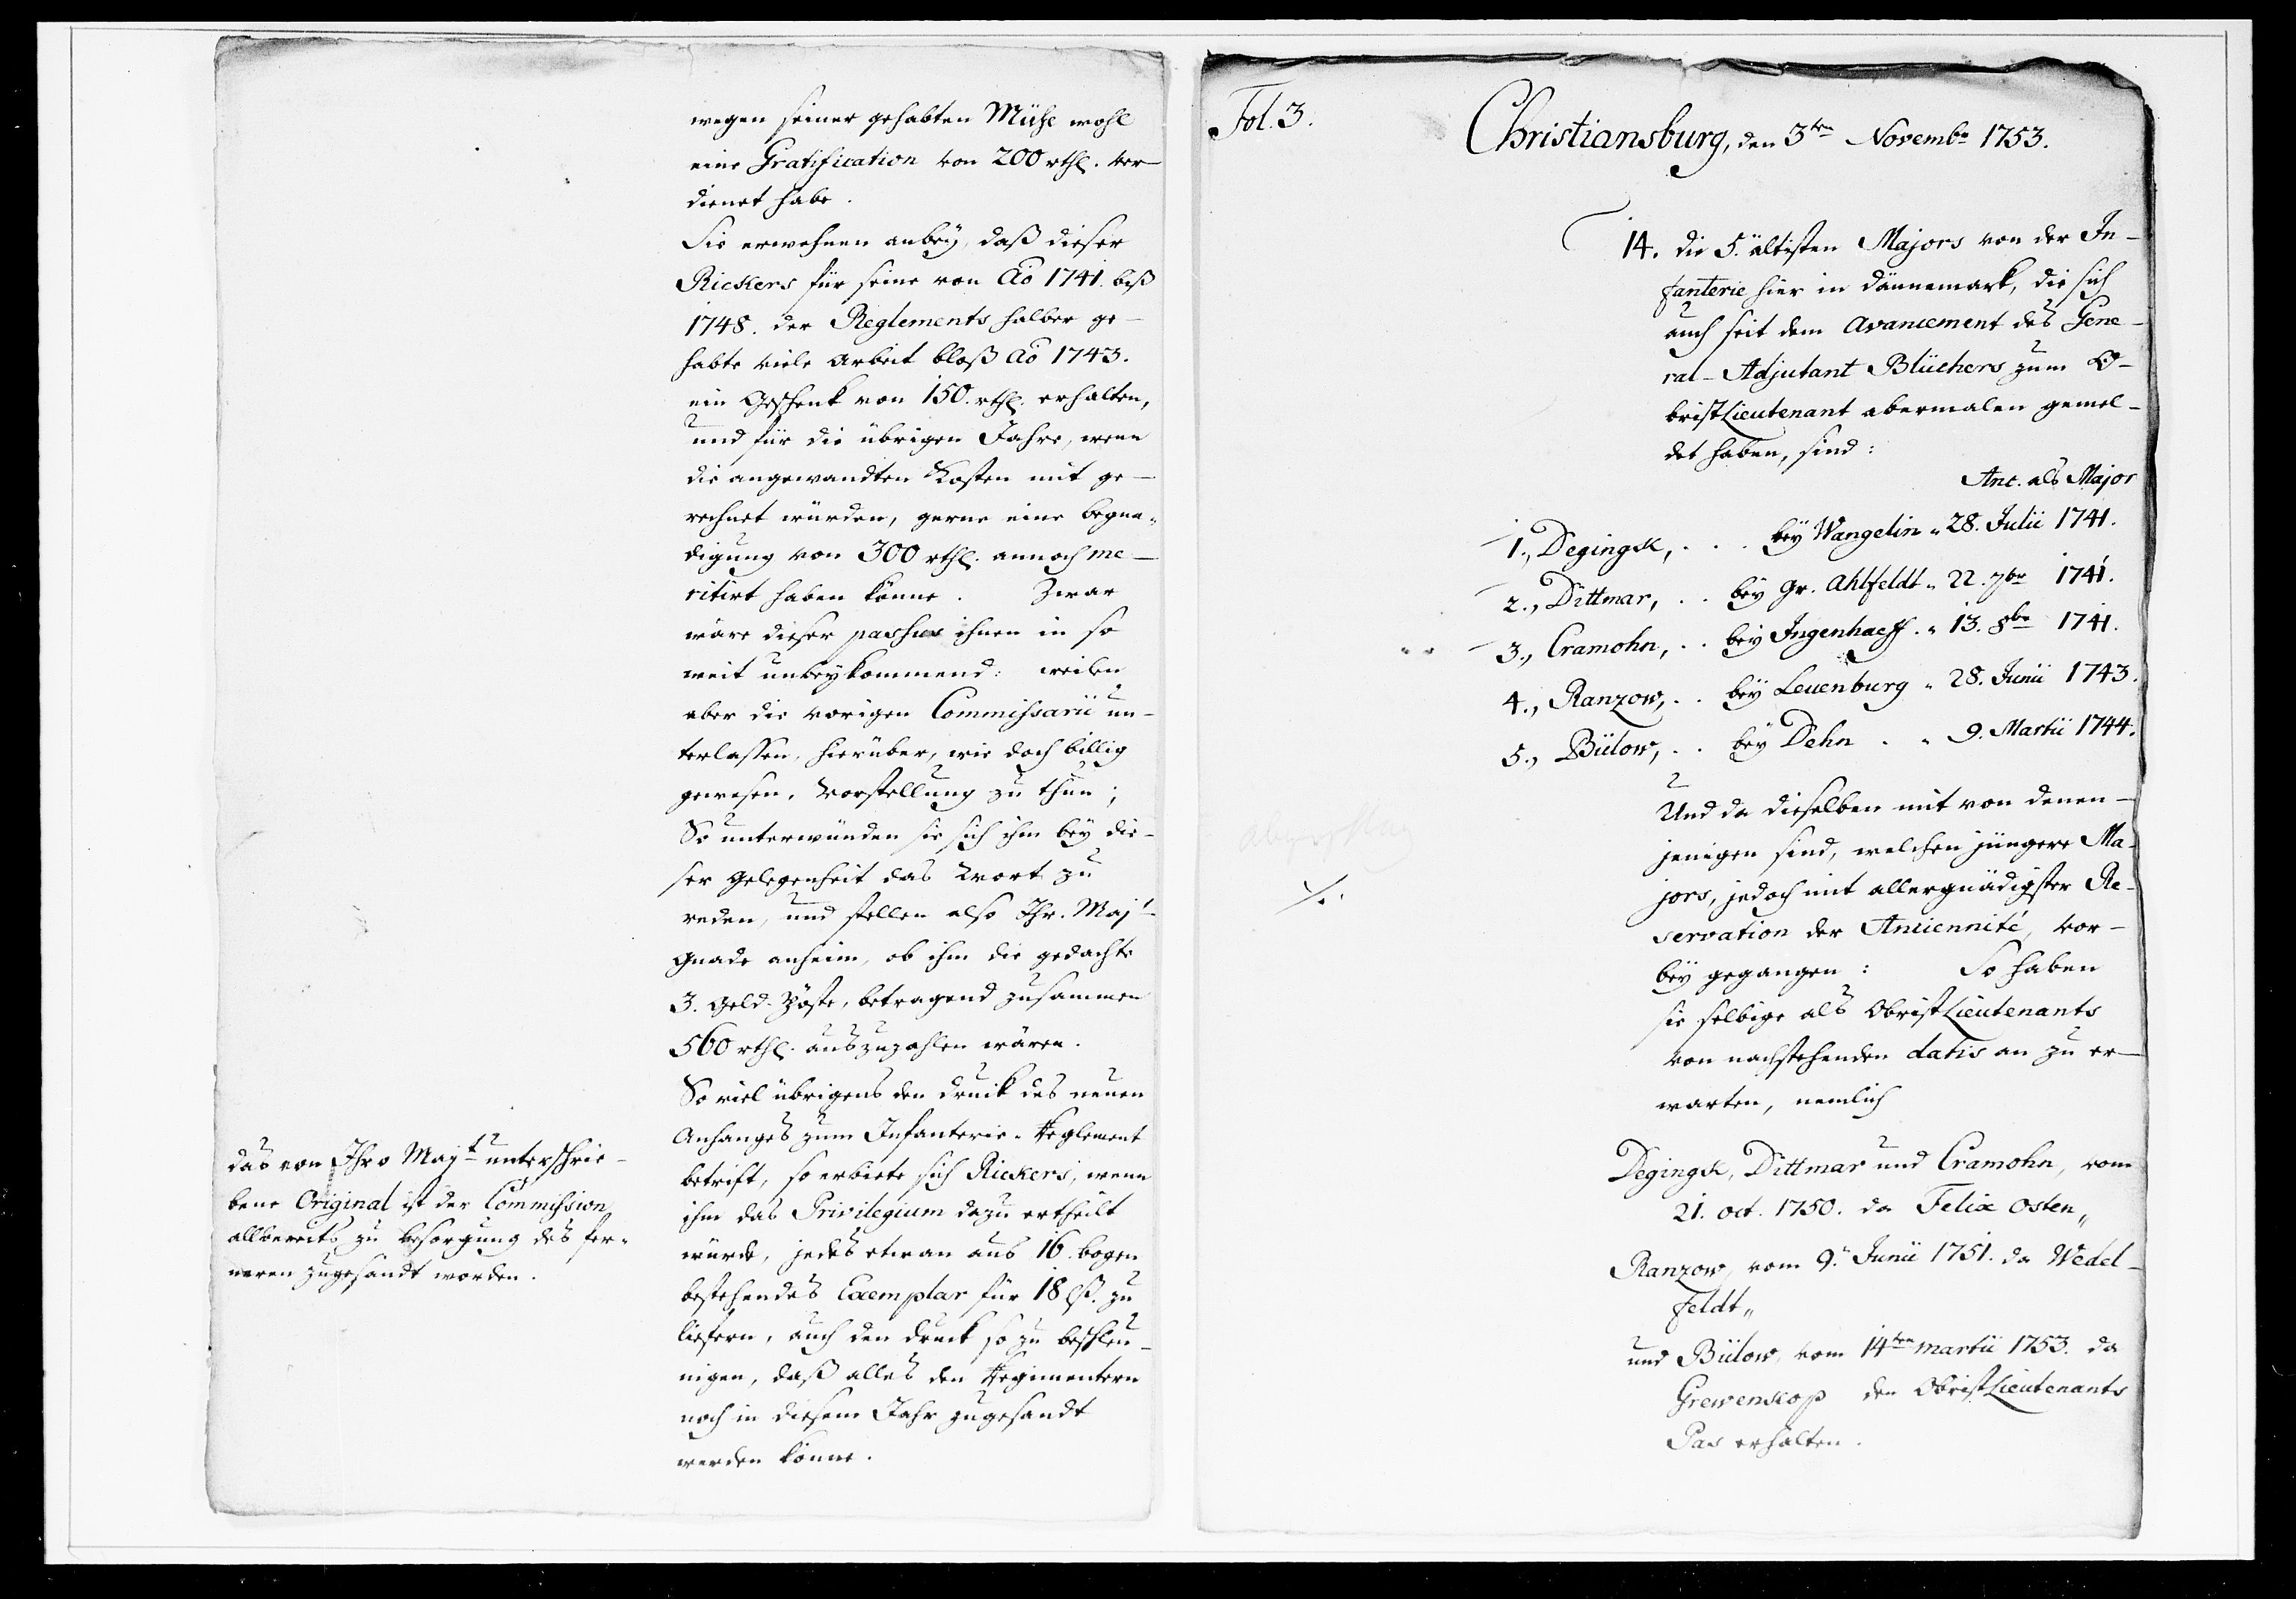 wegen seiner gehabten Mühe wohl
eine Gratification von 200 rthl. ver-
dienet habe.
Sie erwehnen anbey, daß dieser
Rickers für seine von Ao 1741. biß
1748. der Reglements halber ge-
habte viele Arbeit bloß Ao 1743.
ein Geschenk von 150. rthl. erhalten,
und für die übrigen Jahre, wenn
die angewandten Kosten mit ge-
rechnet würden, gerne eine begna-
digung von 300 rthl. annoch me-
ritirt haben könne. Zwar
wäre dieser passus ihnen in so
weit unbeykommend: weilen
aber die vorigen Commissarii un-
terlassen, hierüber, wie doch billig
gewesen, Vorstellung zu thun;
So unterwünden sie sich ihm bey die-
ser gelegenheit das Wort zu
reden, und stellen also Ihr. Majt
Gnade anheim, ob ihm die gedachte
3. Geld-Pöste, betragend zusammen
560 rthl. auszuzahlen wären.
So viel übrigens den Druck des neuen
Anhanges zum Infanterie-Reglement
betrift, so erbiete sich Rickers, wenn
ihm das Privilegium dazu ertheilt
würde, jedes etwan aus 16. bogen
bestehendes Exemplar für 18 lß. zu
liefern, auch den Druck so zu beschleu-
nigen, daß alles den Regimentern
noch in diesem Jahr zugesandt
werden könne.
das von Ihro Mayt unterschrie-
bene Original ist der Commission
allbereits zu besorgung des fer-
neren zugesandt worden.
Fol. 3.
Christiansburg, den 3ten Novembr 1753.
14. die 5. ältisten Majors von der In-
fanterie hier in Dännemark, die sich
auch seit dem Avancement des Gene-
ral-Adjutant Blüchers zum O-
bristLieutenant abermalen gemel-
det haben, sind:
Anc. als Major
1., Degingk, . . . bey Wangelin " 28. Julii 1741.
2., Dittmar, . . bey Gr. Ahlfeldt " 22. 7br 1741.
3., Cramohn, . . bey Ingenhaeff . " 13. 8br 1741.
4., Ranzow, . . bey Leuenburg " 28. Junii 1743.
5., Bülow, . . bey Dehn . " 9. Martii 1744.
Und da dieselben mit von denen-
jenigen sind, welchen jüngere Ma-
jors, jedoch mit allergnädigster Re-
servation der Anciennité, vor-
bey gegangen: So haben
sie selbige als ObristLieutenants
von nachstehenden datis an zu er-
warten, nemlich
Degingk, Dittmar und Cramohn, vom
21. oct. 1750. da Felix Osten,,
Ranzow, vom 9. Junii 1751. da Wedel-
feldt,,
und Bülow, vom 14ten martii 1753. da
Grewenkop den ObristLieutenants
Pas erhalten.